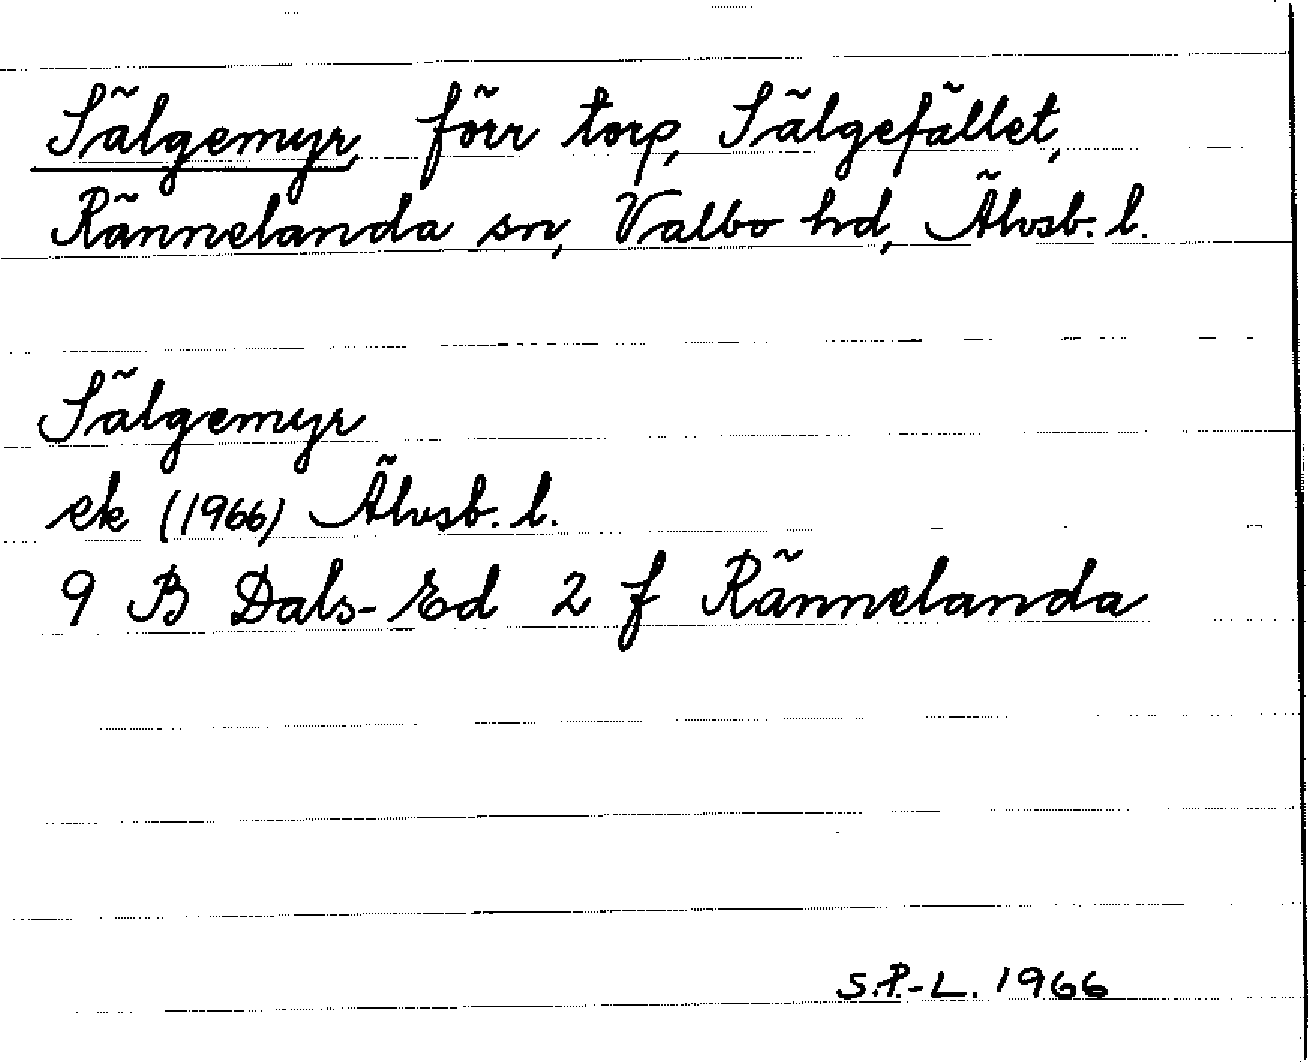 Sälgemyr, förr torp, Sälgefället,
Rännelanda sn, Valbo hd, Älvsb. l.
Sälgemyr
ek (1966) Älvsb. l.
9 B Dals-Ed 2 f Rännelanda
S.P.-L. 1966